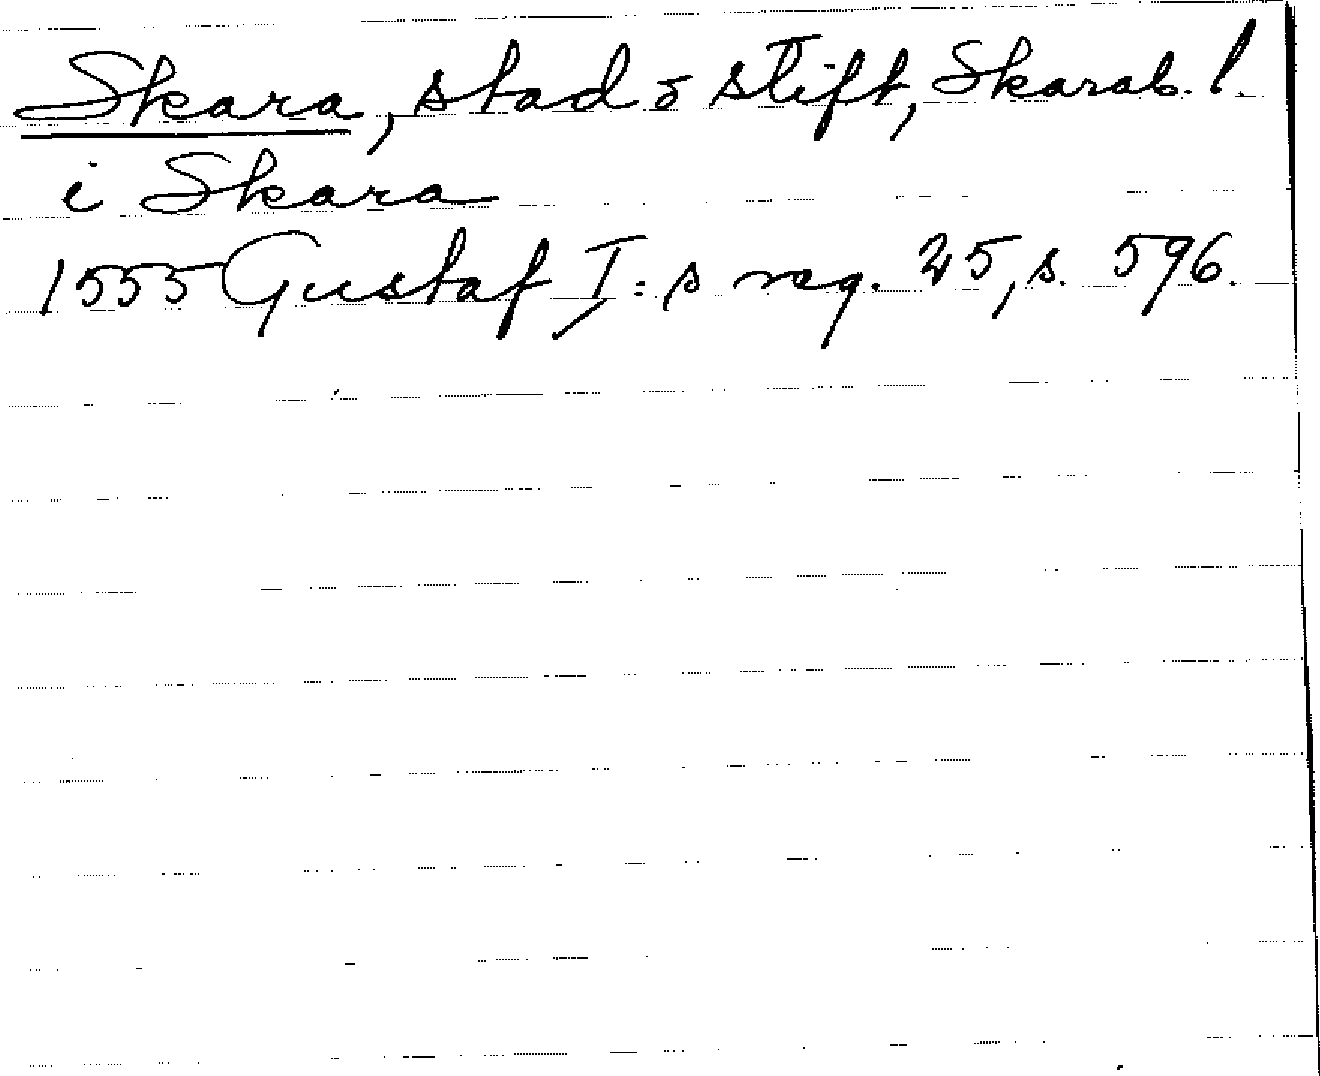 Skara, stad o stift, Skarab. l.
i Skara
1555 Gustaf I:s reg. 25, s. 596.